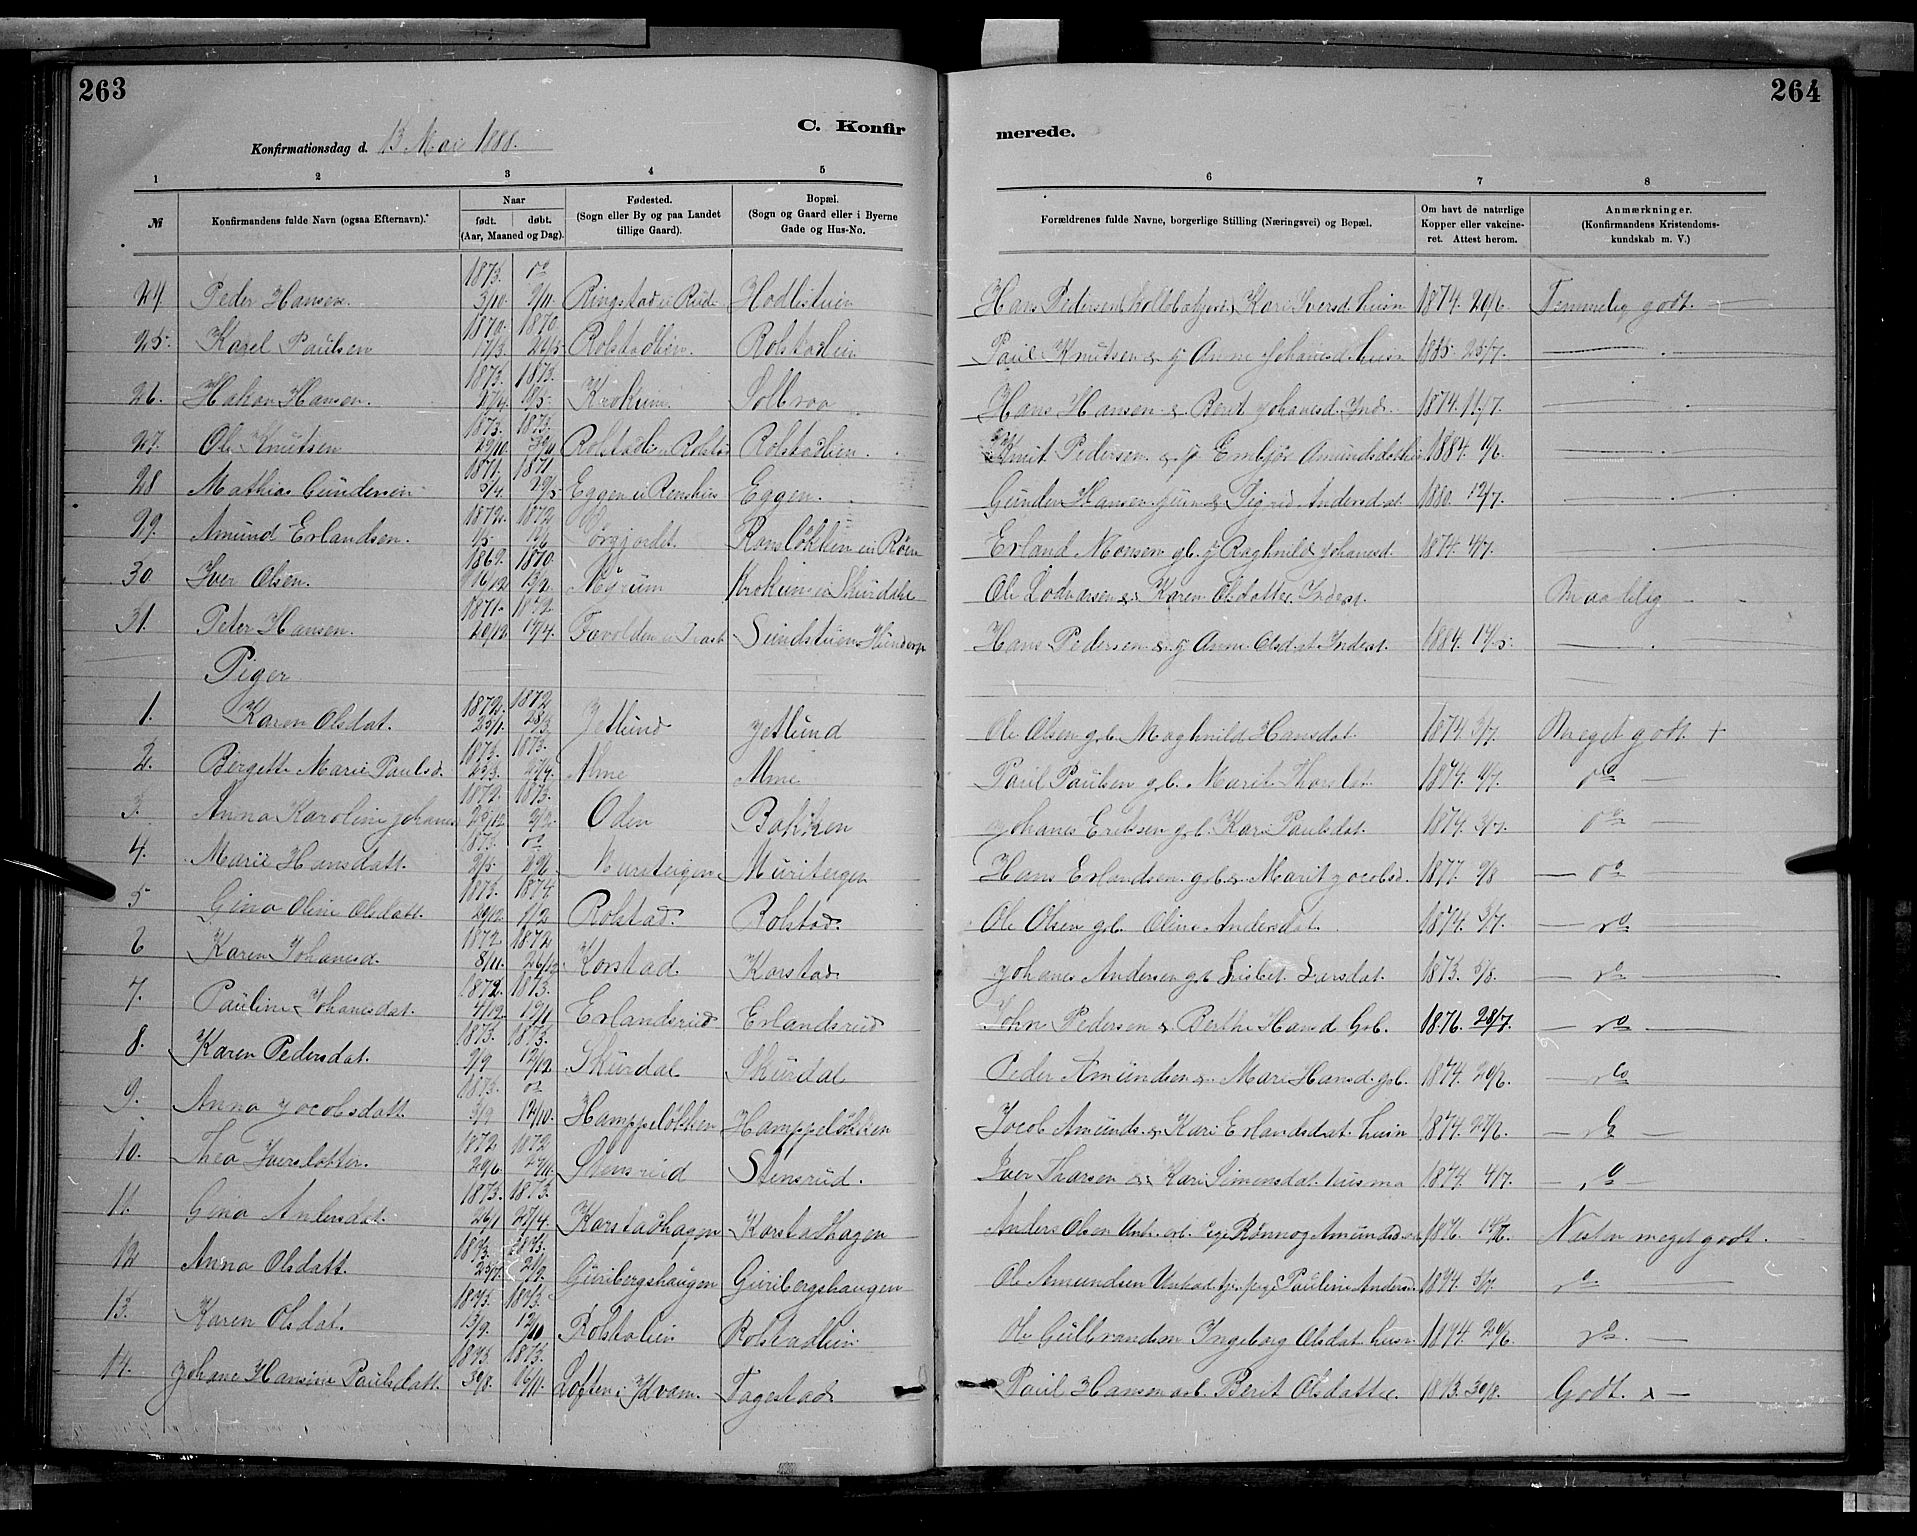 263
264
C. Konfir
merede.
Konfirmationsdag d. 13 Mai 1888.
1 2 3 4 5 6 7 8
№ Konfirmandens fulde Navn (ogsaa Efternavn). Naar født. døbt. (Aar, Maaned og Dag). Fødested. (Sogn eller By og paa Landet tillige Gaard). Bopæl. (Sogn og Gaard eller i Byerne Gade og Hus-No. Forældrenes fulde Navne, borgerlige Stilling (Næringsvei) og Bopæl. Om havt de naturlige Kopper eller vakcineret. Attest herom. Anmærkninger. (Konfirmandens Kristendomskundskab m. V.)
24 Peder Hansen. 1873. 3/10. do 2/11. Ringstad Hodlistuen Hans Pedersen Kari Iversd. husm 1874. 29/6. Temmelig godt.
25. Karel Paulsen 1870. 17/3. 1870. Rolstadlien. Rolstadlien Paul Knutsen & g Anne Johanesd. husm 1885 25/7.
26. Hakon Hansen. 1873. 17/4. 1873. 18/5. Krokum. Solbraa Hans Hansen & Berit Johanesd. Ind. 1874. 11/7.
27. Ole Knutsen 1873. 1873. Rolstadlien. Knut Pedersen & g Embjør Amundsd. 1884.
28 Mathias Gundersen 1871. 5/4. 1871 29/5 Eggen Eggen. Gunder Hansen & Sigrid Andersdat 1880. 12/7.
29. Amund Erlandsen. 1872. 1/5. 1872 Torgjordet. Ronsløkken Erland Monsen gb. g Raghnild Johanesd. 1874. 4/7.
30 Iver Olsen. 1869. 16/12 1870. 13/2. Nørum Krokum i Skurdal Ole Lodvarsen & Karen Olsdatter Inderst. Maadelig
31. Peter Hansen. 1871. 29/12. 1872 14/4. Sundstuen Hundorp Hans Pedersen & g Anne Olsdat Inderst. 1884. 14/5.
Piger
1. Karen Olsdat. 1872. 25/1. 1872 28/3 Jetlund Jetlund Ole Olsen gb. Maghnild Hansdat. 1874. 3/7. Meget godt +
2. Bergette Marie Paulsd. 1873. 23/3. 1873. 27/4. Alme Alme Paul Paulsen gb. Marit Thorsdat 1874. 4/7. do
3. Anna Karoline Johanes 1872. 29/12. 1873. 2/2. Oden Bakken Johanes Eriksen gb. Kari Paulsdat. 1874. 3/7. do
4. Marie Hansdatt. 1873. 2/5. do 29/6 Muristeigen Muriteigen Hans Erlandsen gb. & Marit Jacobsd. 1877. 9/8 do
5 Gina Oline Olsdatt. 1873. 29/12. 1874 1/2 Rolstad. Rolstad. Ole Olsen gb. Oline Andersdat. 1874. 3/7. do
6 Karen Johanesd. 1872. 8/11. 1872 26/12 Korstad. Korstad Johanes Andersen gb. Lisbet Larsdat. 1873. 5/8. do
7. Pauline Johanesdat. 1872. 4/12. 1873. 19/1 Erlandsrud Erlandsrud John Pedersen & Berthe Hansd. Grb. 1876. 28/7. do
8. Karen Pedersdat. 1873. 9/9 1873. 12/12. Skurdal Skurdal Peder Amundsen & Mari Hansd. grb. 1874. 29/6. do
9. Anna Jacobsdatt. 1873. 3/9 do 12/10. Hamppeløkken Hamppeløkken Jocob Amunds. & Kari Erlandsdat. husm 1874. 27/6. do
10. Thea Iversdatter. 1872. 29/6 1872. 27/11. Stensrud Stensrud. Iver Tharsen & Kari Simensdat. husma 1874. 4/7. do
11. Gina Andersdat. 1873. 26/1 1873. 27/4. Korstadhagen Korstadhagen Anders Olsen Unkr. og Pige Rønnog Amundsd. 1876. Nesten meget godt.
12 Anna Olsdatt. 1873. 25/7. 1873. 21/9. Guribergshaugen Guribergshaugen Ole Amundsen Pauline Anders 1874. 3/7. do
13. Karen Olsdat. 1873. 13/9. 1873. 12/10 Rolstalien Rolstadlien Ole Gulbrandsen Ingeborg Olsdat. husm 1874. 29/6. do
14. Johane Hansine Paulsdatt. 1873. 30/8. 1873. 16/11. Loften i Kvam. Tagestad Paul Hansen grb. Berit Olsdatter. 1873. 30/8. Godt. x